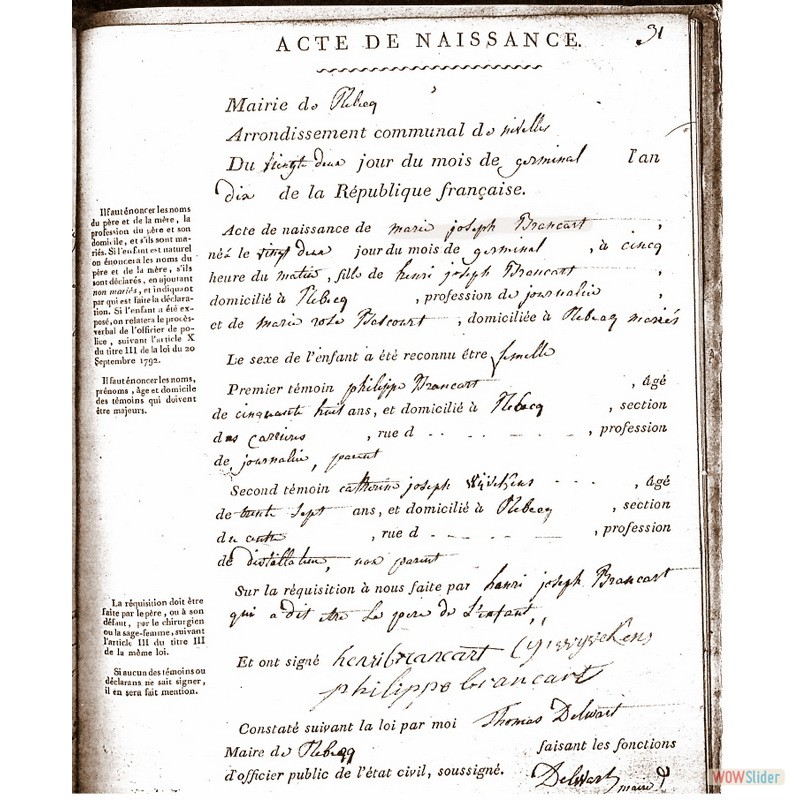 ACTE DE NAISSANCE.
31
Mairie de Rebecq
Arrondissement communal de nivelles
Du vingt deux jour du mois de germinal l'an
dix de la République française.
Il faut énoncer les noms
du père et de la mère, la
profession du père et son
domicile, et s'ils sont ma-
riés. Si l'enfant est naturel
on énoncera les noms du
père et de la mère, s'ils
sont déclarés, en ajoutant
non mariés, et indiquant
par qui est faite la déclara-
tion. Si l'enfant a été ex-
posé, on relatera le procès-
verbal de l'officier de po-
lice, suivant l'article X
du titre III de la loi du 20
Septembre 1792.
Il faut énoncer les noms,
prénoms, âge et domicile
des témoins qui doivent
être majeurs.
Acte de naissance de marie joseph Brancart ,
né le vingt deux jour du mois de germinal , à cincq
heure du matin, fille de henri joseph Brancart ,
domicilié à Rebecq , profession de journalier ,
et de marie rose , domiciliée à Rebecq mariés
Le sexe de l'enfant a été reconnu être femelle
Premier témoin philippe Brancart , âgé
de cinquante huit ans, et domicilié à Rebecq , section
des carrieres , rue d , profession
de journalier, parent
Second témoin catherine joseph , âgé
de trente sept ans, et domicilié à Rebecq , section
du , rue d , profession
de distillateur, non parent
La réquisition doit être
faite par le père, ou à son
défaut, par le chirurgien
ou la sage-femme, suivant
l'article III du titre III
de la même loi.
Si aucun des témoins ou
déclarans ne sait signer,
il en sera fait mention.
Sur la réquisition à nous faite par henri joseph Brancart
qui a dit etre le pere de l'enfant,
Et ont signé henri brancart
philippe brancart
Constaté suivant la loi par moi Thomas Delwart
Maire de Rebecq faisant les fonctions
d'officier public de l'état civil, soussigné. Delwart maire
WOWSlider